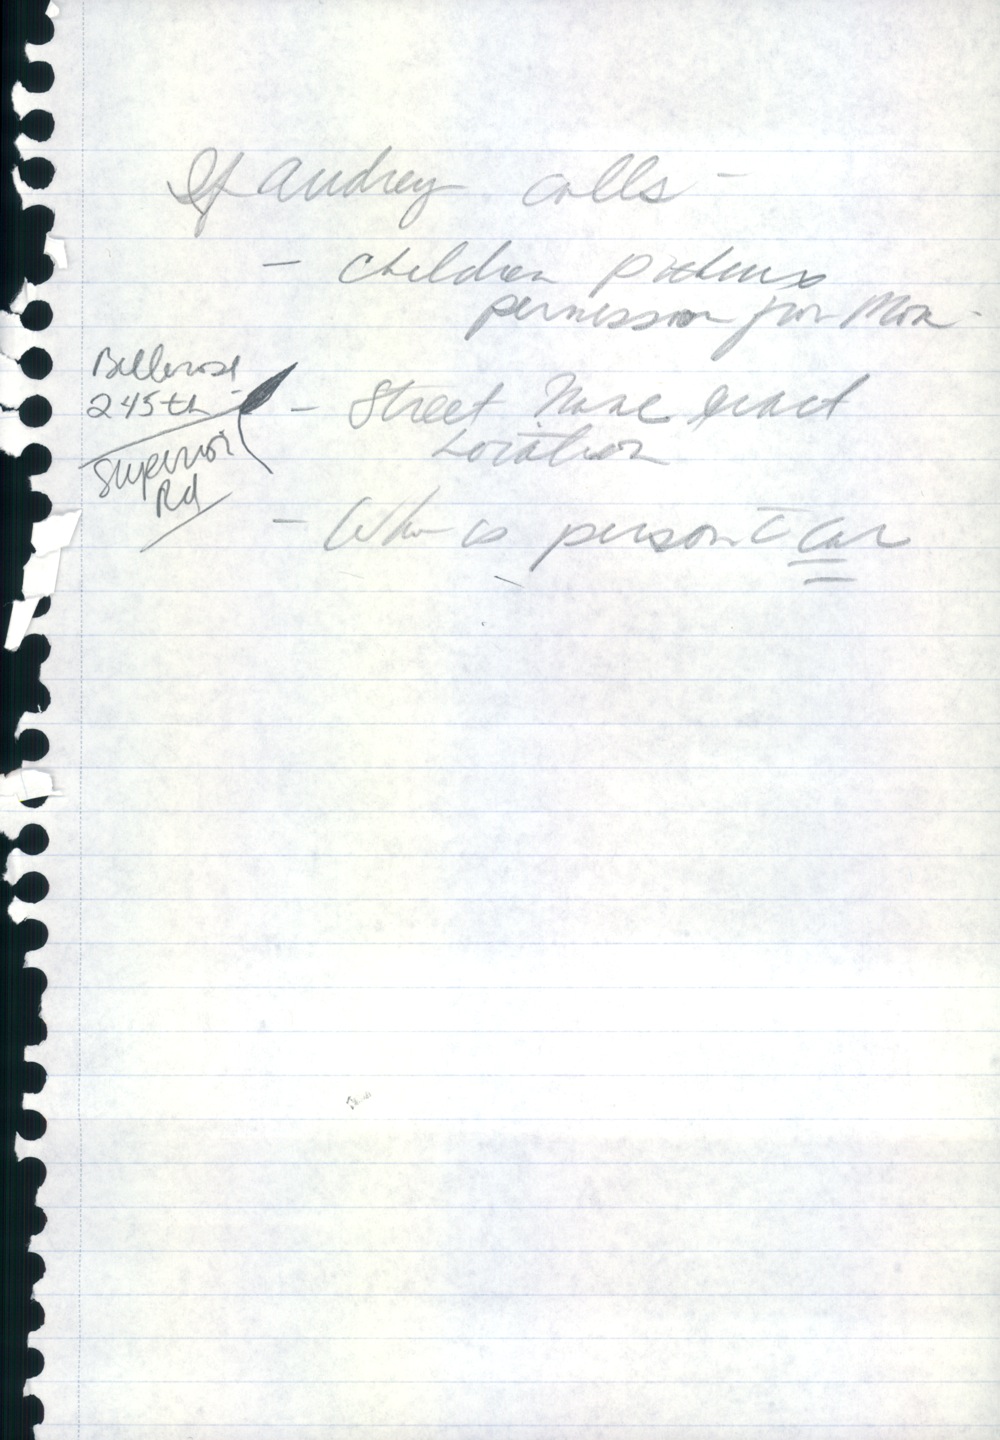 If Audrey calls -
- Children pictures
permission from Mon.
Bellerose
245th
Superior
Rd
- Street Name exact
Location
- Who is person c̄ car